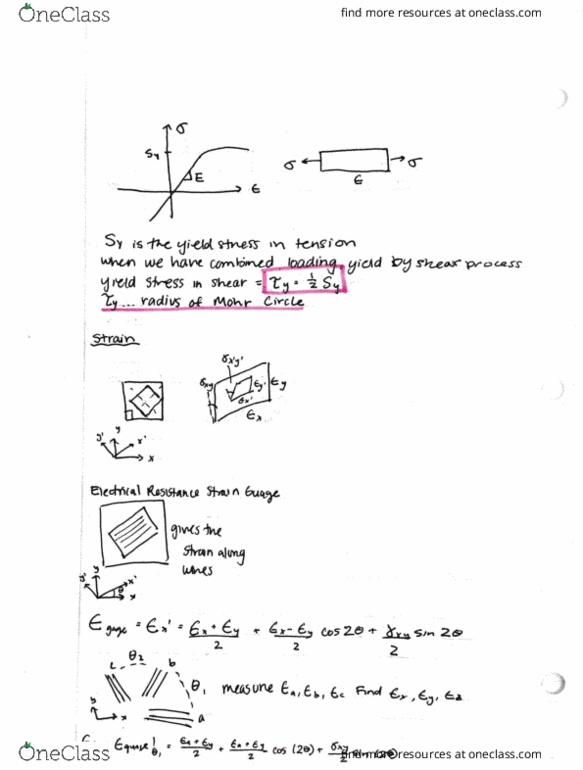 OneClass
find more resources at oneclass.com
σ
Sy
E
ϵ
σ ← → σ
ϵ
Sy is the yield stress in tension
when we have combined loading, yield by shear process
yield stress in shear = τy = ½ Sy
τy ... radius of Mohr Circle
Strain
γx'y'
γxy ϵy' ϵy
ϵx'
ϵx
y
y' x'
x
Electrical Resistance Strain Guage
gives the
strain along
wires
y
y' x'
θ
x
ϵgage = ϵx' = (ϵx + ϵy)/2 + (ϵx - ϵy)/2 cos 2θ + γxy/2 sin 2θ
c θ2 b
θ1 measure ϵa, ϵb, ϵc Find ϵx, ϵy,
y
x
a
OneClass
find more resources at oneclass.com